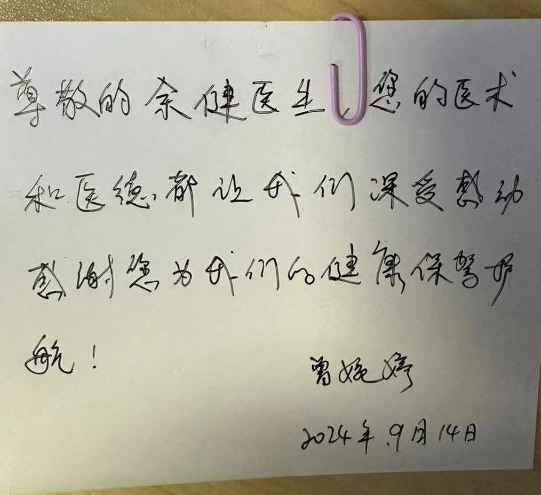 尊敬的余健医生，您的医术
和医德，都让我们深受感动
感谢您为我们的健康保驾护
航！
曾婉婷
2024年.9月14日